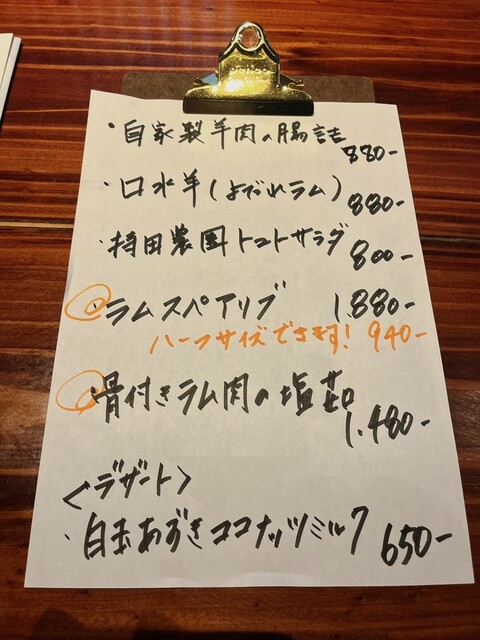 ・自家製羊肉の腸詰 880-
・口水羊(よだれラム) 880-
・持田農園トマトサラダ 800-
・ラムスペアリブ 1,880-
ハーフサイズできます! 940-
・骨付きラム肉の塩茹 1,480-
<デザート>
・白玉あずきココナッツミルク 650-